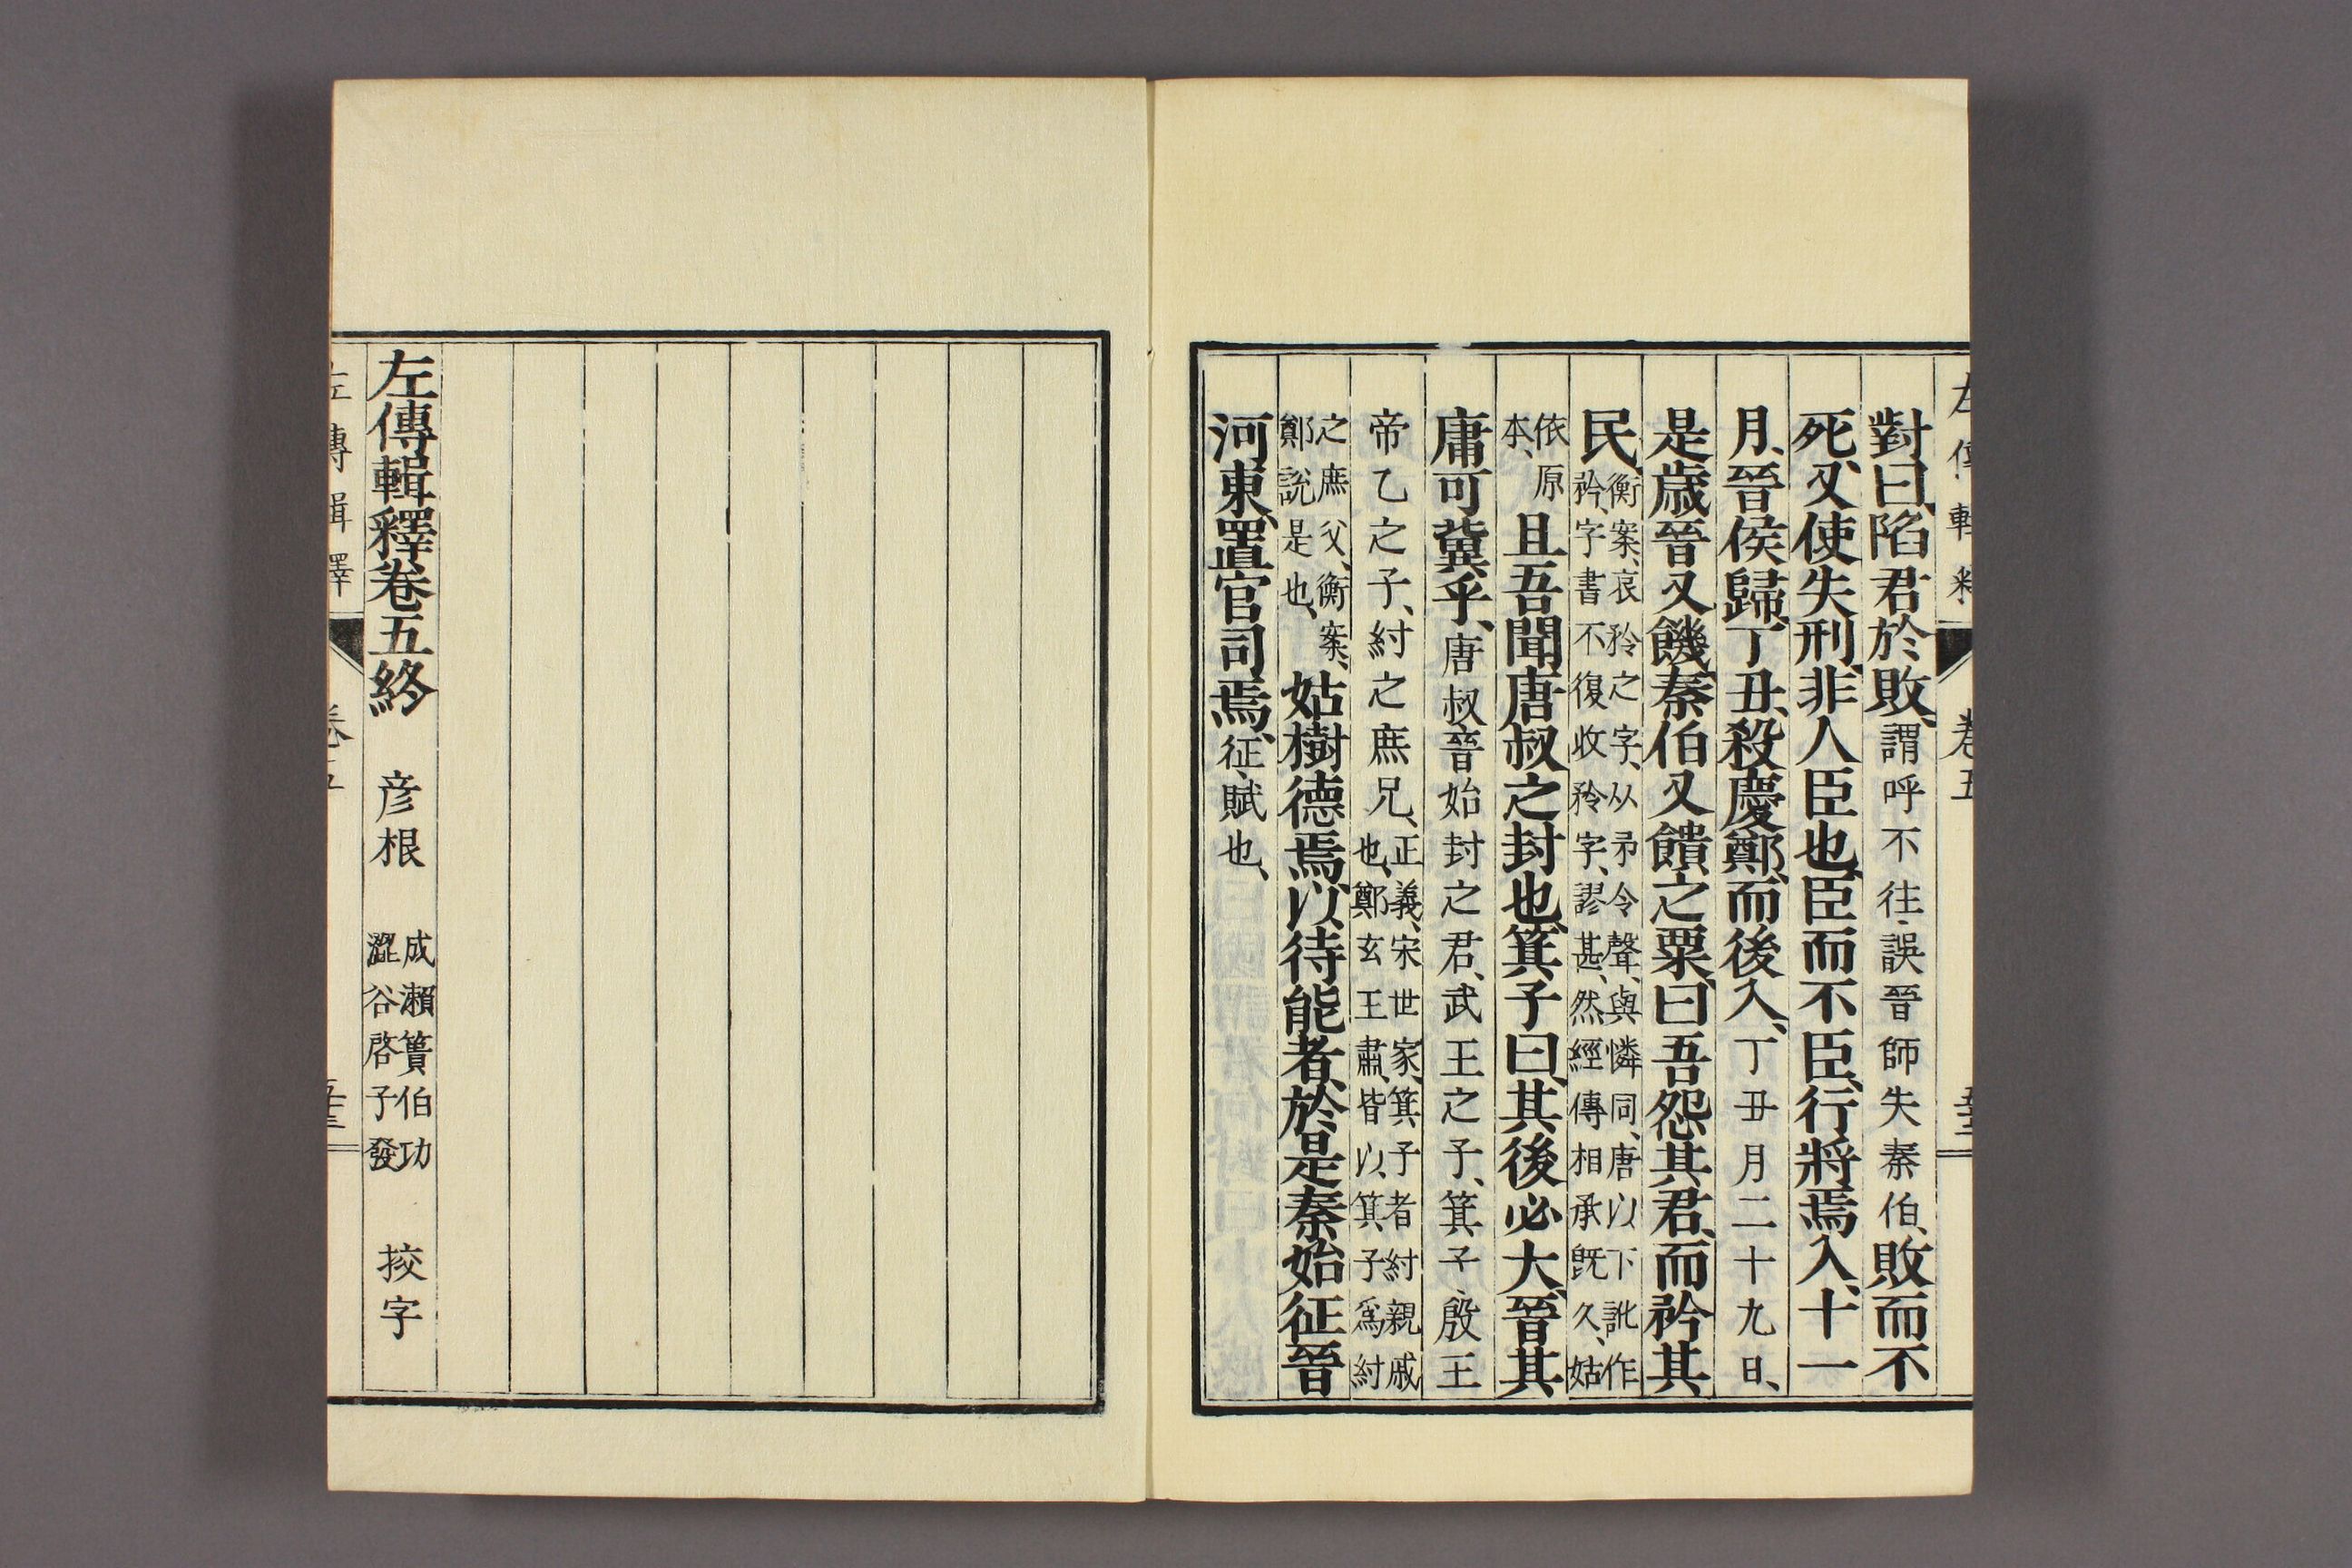 左傳輯釋 卷五
對曰、陷君於敗、謂呼不往、誤晉師失秦伯、敗而不
死、又使失刑、非人臣也、臣而不臣、行將焉入、十一
月、晉侯歸、丁丑、殺慶鄭、而後入、丁丑月二十九日、
是歲晉又饑、秦伯又饋之粟、曰、吾怨其君、而矜其
民、衡案、哀矜之字、从矛令聲、與憐同、唐以下訛作
矜、字書不復收矝字、謬甚、然經傳相承既久、姑
依原
本、且吾聞唐叔之封也、箕子曰、其後必大、晉其
庸可冀乎、唐叔晉始封之君、武王之子、箕子、殷王
帝乙之子、紂之庶兄、正義、宋世家、箕子者紂親戚
也、鄭玄王肅、皆以箕子爲紂
之庶父、衡案、
鄭說是也、姑樹德焉、以待能者、於是秦始征晉
河東、置官司焉、征、賦也、
左傳輯釋卷五終 彥根 成瀨簣伯功
澀谷啓子發 挍字
左傳輯釋